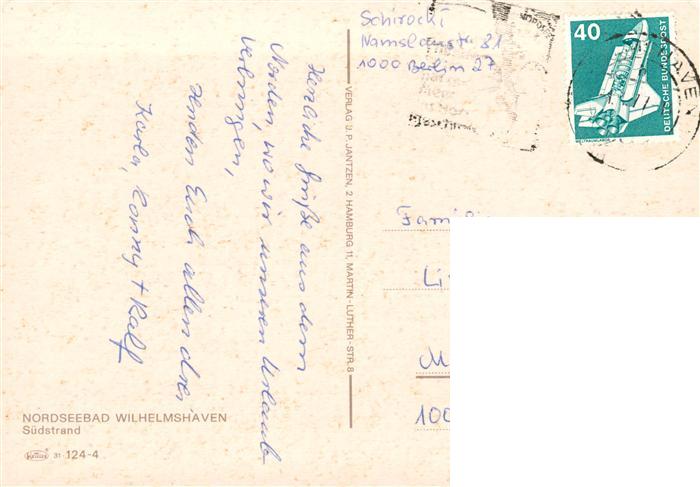 Schirocki
Namslaustr. 81
1000 Berlin 27
40
DEUTSCHE BUNDESPOST
WELTRAUMLABOR
HAVEN
Herzliche Grüße aus dem
Norden, wo wir unseren Urlaub
verbringen,
senden Euch allen drei
Karla, Conny + Ralf
VERLAG J. P. JANTZEN, 2 HAMBURG 11, MARTIN-LUTHER-STR. 8
Famili
Li
M
100
NORDSEEBAD WILHELMSHAVEN
Südstrand
31 124-4